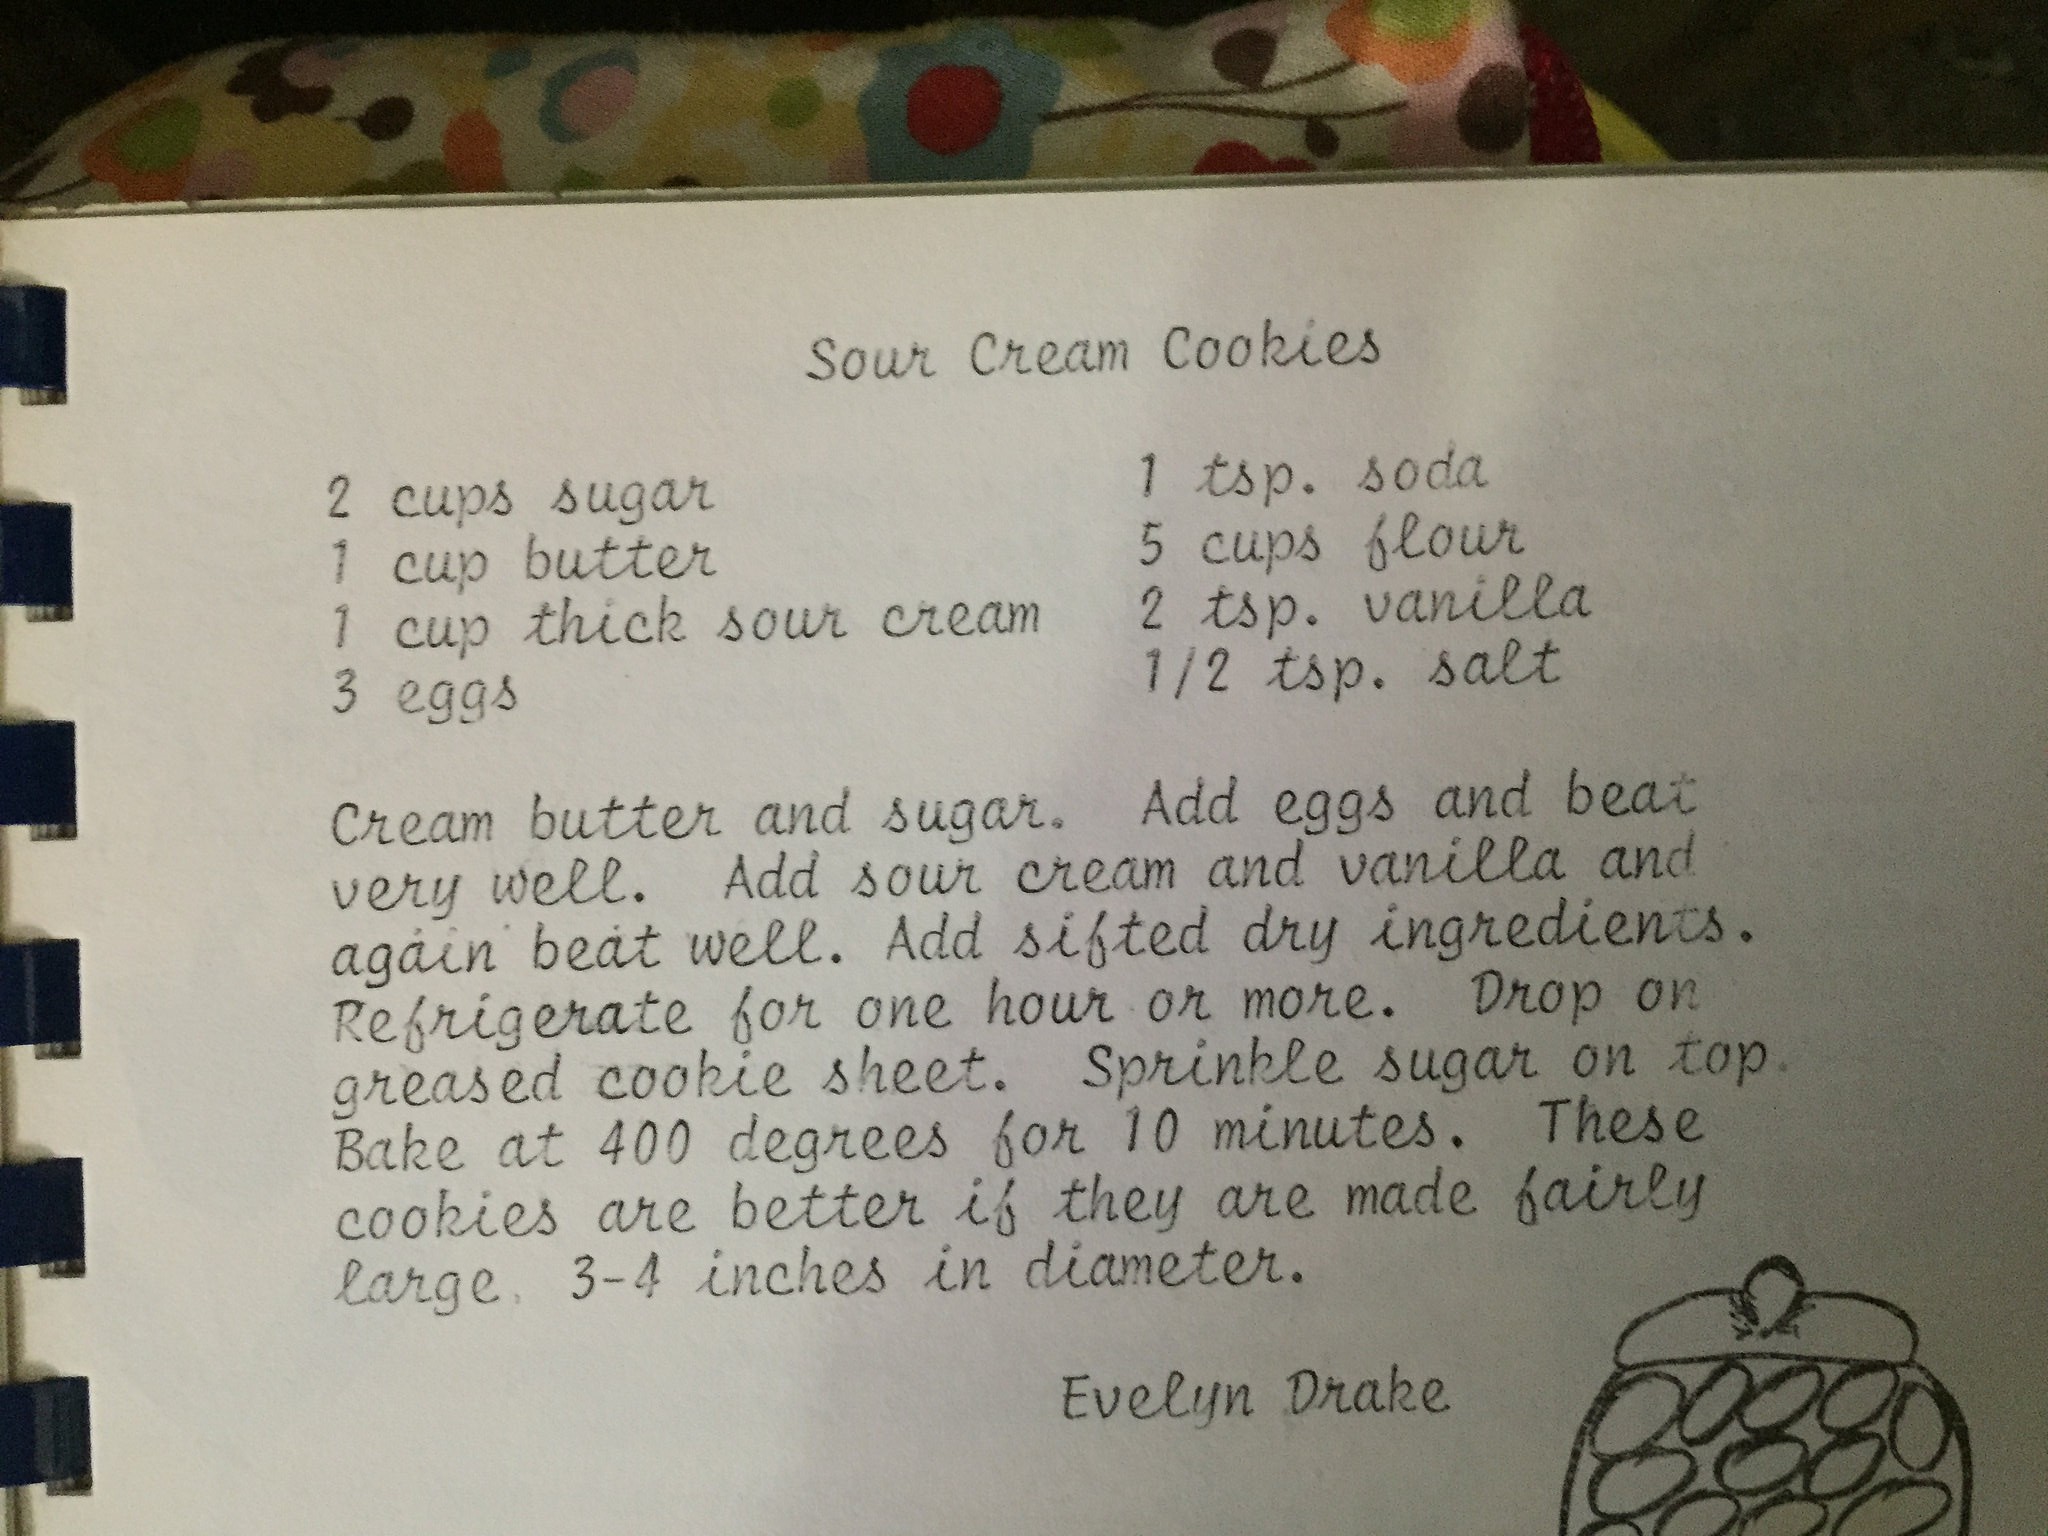 Sour Cream Cookies
2 cups sugar
1 cup butter
1 cup thick sour cream
3 eggs
1 tsp. soda
5 cups flour
2 tsp. vanilla
1/2 tsp. salt
Cream butter and sugar. Add eggs and beat
very well. Add sour cream and vanilla and
again beat well. Add sifted dry ingredients.
Refrigerate for one hour or more. Drop on
greased cookie sheet. Sprinkle sugar on top.
Bake at 400 degrees for 10 minutes. These
cookies are better if they are made fairly
large. 3-4 inches in diameter.
Evelyn Drake